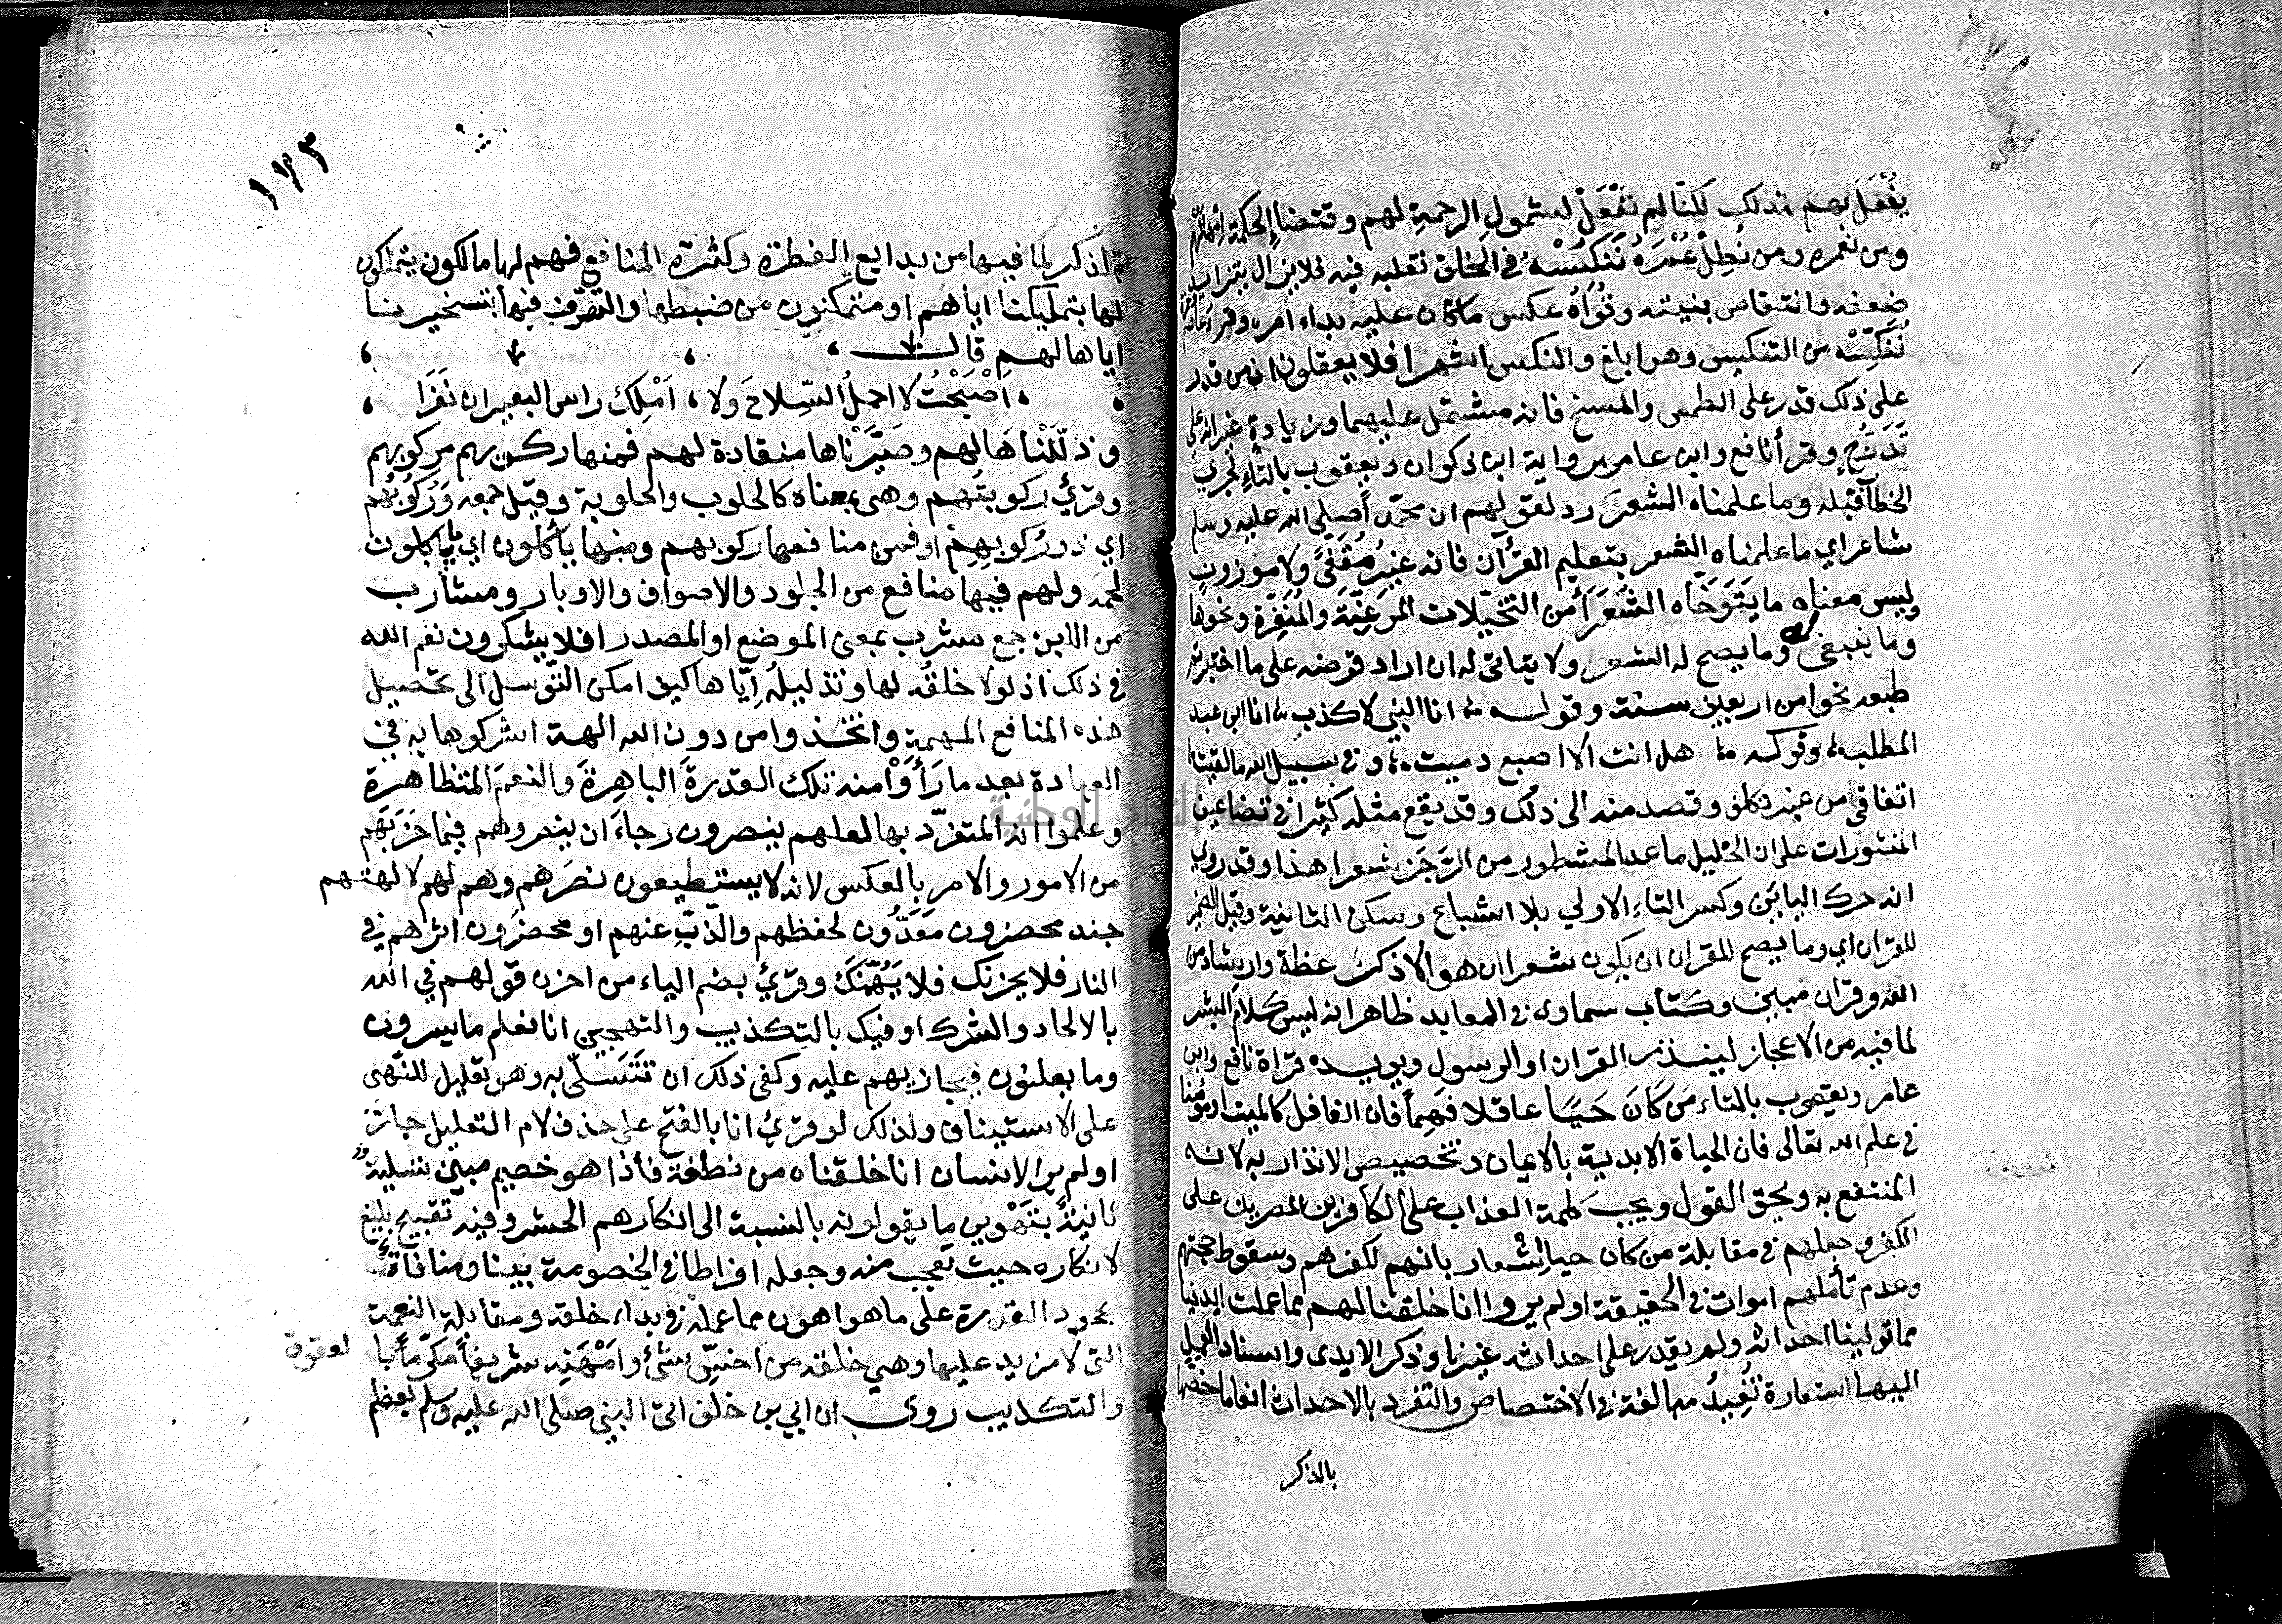 يُفْعَلَ بهم ذلك لكنّا لم نَفْعَلْ لشمولِ الرحمةِ لهم وقتضاءِ الحكمة امهالهم
ومن نعمره ومن نُطِلْ عُمْرَهُ نَنَكِّسْهُ في الخلق نقلبه فيه فلا يزال يتزايد
ضعفه وانتقاص بنيته وقُوَاهُ عكس ما كان عليه بداء امره وقراء عاصم
نُنَكِّسْه من التنكيس وهو ابلغ والنكس اشهر افلا يعقلون ان من قدر
على ذلك قدر على الطمس والمسخ فانه مشتمل عليهما وزيادةٍ غير انه على
تَدَرُّجٍ وقرأ نافع وابن عامر برواية ابن ذكوان ويعقوب بالتاءِ لجري
الخطاب قبله وما علمناه الشعرَ رد لقولهم ان محمّدًا صلى الله عليه وسلم
شاعر اي ما علمناه الشعر بتعليم القرآن فانه غيرُ مُقَفًّى ولا موزونٍ
وليس معناه ما يَتَوَخَّاه الشُّعَرَاءُ من التخيّلات المرغّبَة والمُنَفِّرَة ونحوها
وما ينبغي له وما يصح له الشعر ولا يتاتى له ان اراد قرضه على ما اختبرتم
طبعه نحوا من اربعين سنة وقوله انا النبي لا كذب انا ابن عبد
المطلب وقوله هل انت الا اصبع دميت وفي سبيل الله ما لقيت
اتفاقي من غير تكلف وقصد منه الى ذلك وقد يقع مثله كثيرا في تضاعيف
المنثورات على ان الخليل ما عدا المشطور من الرَّجَز شعرا هذا وقد روي
انه حرك البائين وكسر التاءَ الاولي بلا اشباع وسكن الثانية وقيل الضمير
للقران اي وما يصح للقران ان يكون شعرا ان هو الا ذكر عظة وارشاد من
الله وقران مبين وكتاب سماوى فى المعابد ظاهر انه ليس كلامَ البشر
لما فيه من الاعجاز لينذر القران او الرسول ويويده قراة نافع وابن
عامر ويعقوب بالتاء من كَانَ حَيًّا عاقلا فَهِمًا فان الغافل كالميت او مؤمنا
في علم الله تعالى فان الحياة الابدية بالايمان وتخصيص الانذار به لانه
المنتفع به ويحق القول ويجب كلمة العذاب على الكافرين المصرين على
الكفر وجعلهم في مقابلة من كان حيا اشعار بانهم لكفرهم وسقوط حجتهم
وعدم تأملهم اموات في الحقيقة اولم يروا انا خلقنا لهم مما عملت ايدينا
مما تولينا احداثه ولم يقدر على احداثه غيرنا وذكر الايدى واسناد العمل
اليها استعارة تُفِيدُ مبالغة في الاختصاص والتفرد بالاحداث انعاما خصها
بالذكر
١٧٣
بالذكر لما فيها من بدايع الفطرة وكثرة المنافع فهم لها مالكون يتملكون
لها بتمليكنا اياهم او متمكنون من ضبطها والتصرّف فيها بتسخيرنا
اياها لهم قال
اَصْبَحْتُ لا احملُ السِّلاحَ ولا اَمْلِك راس البعير ان نَفَرَا
وذلّلْنَاهَا لهم وصَيَّرْنَاها منقادة لهم فمنها ركوبهم مركوبهم
وقرئ ركوبتُهم وهى بمعناه كالحلوب والحلوبة وقيل جمعه ورُكُوبُهم
اي ذو رُكوبِهِم او فمن منافعها ركوبهم ومنها يأكلون اي ما ياكلون
لحمه ولهم فيها منافع من الجلود والاصواف والاوبار ومشارب
من اللبن جمع مشرب بمعنى الموضع او المصدر افلا يشكرون نعم الله
في ذلك اذ لولا خلقُه لها وتذليلُه إيّاها كيف امكن التّوسل الى تحصيل
هذه المنافع المهمة واتخذوا من دون الله الهة اشركوها به في
العبادة بعد ما رَأَوْا منه تلك القدرةَ الباهِرةَ والنعمَ المتظاهرة
وعلموا انه المتفرّد بها لعلهم ينصرون رجاءَ ان ينصروهم فيما حَزَبَهُم
من الامور والامر بالعكس لانه لا يستطيعون نصرَهم وهم لهم لالهتهم
جند محضرون مُعَدُّون لحفظهم والذّبّ عنهم او محضرُون اثرهم في
النار فلا يحزنك فلا يَهُمَّنَكَ وقرئ بضم الياء من احزن قولهم في الله
بالالحاد والشرك او فيك بالتكذيب والتهجين انا نعلم ما يسرون
وما يعلنون فيجازيهم عليه وكفى ذلك ان تَتَسَلَّى به وهو تعليل للنّهى
على الاستيناف ولذلك لو قرئ انا بالفتح على حذف لام التعليل جاز
اولم ير الانسان انا خلقناه من نطفة فأذا هو خصيم مبين تسلية
ثانيةٌ بتَهْوين ما يقولونه بالنسبة الى انكارهم الحشر وفيه تقبيح بليغ
لانكاره حيث تعجب منه وجعله افراطا في الخصومة بينا ومنافاة
بجحود القدرة على ما هو اهون مما عمله في بداء خلقه ومقابلة النعمة
التى لا مزيد عليها وهي خلقه من اخسّ شئ وامْهَنِه شريفاً مكرّماً بالعقوق
والتكذيب روى ان ابي بن خلف اتى النبي صلى الله عليه وسلم بعظم